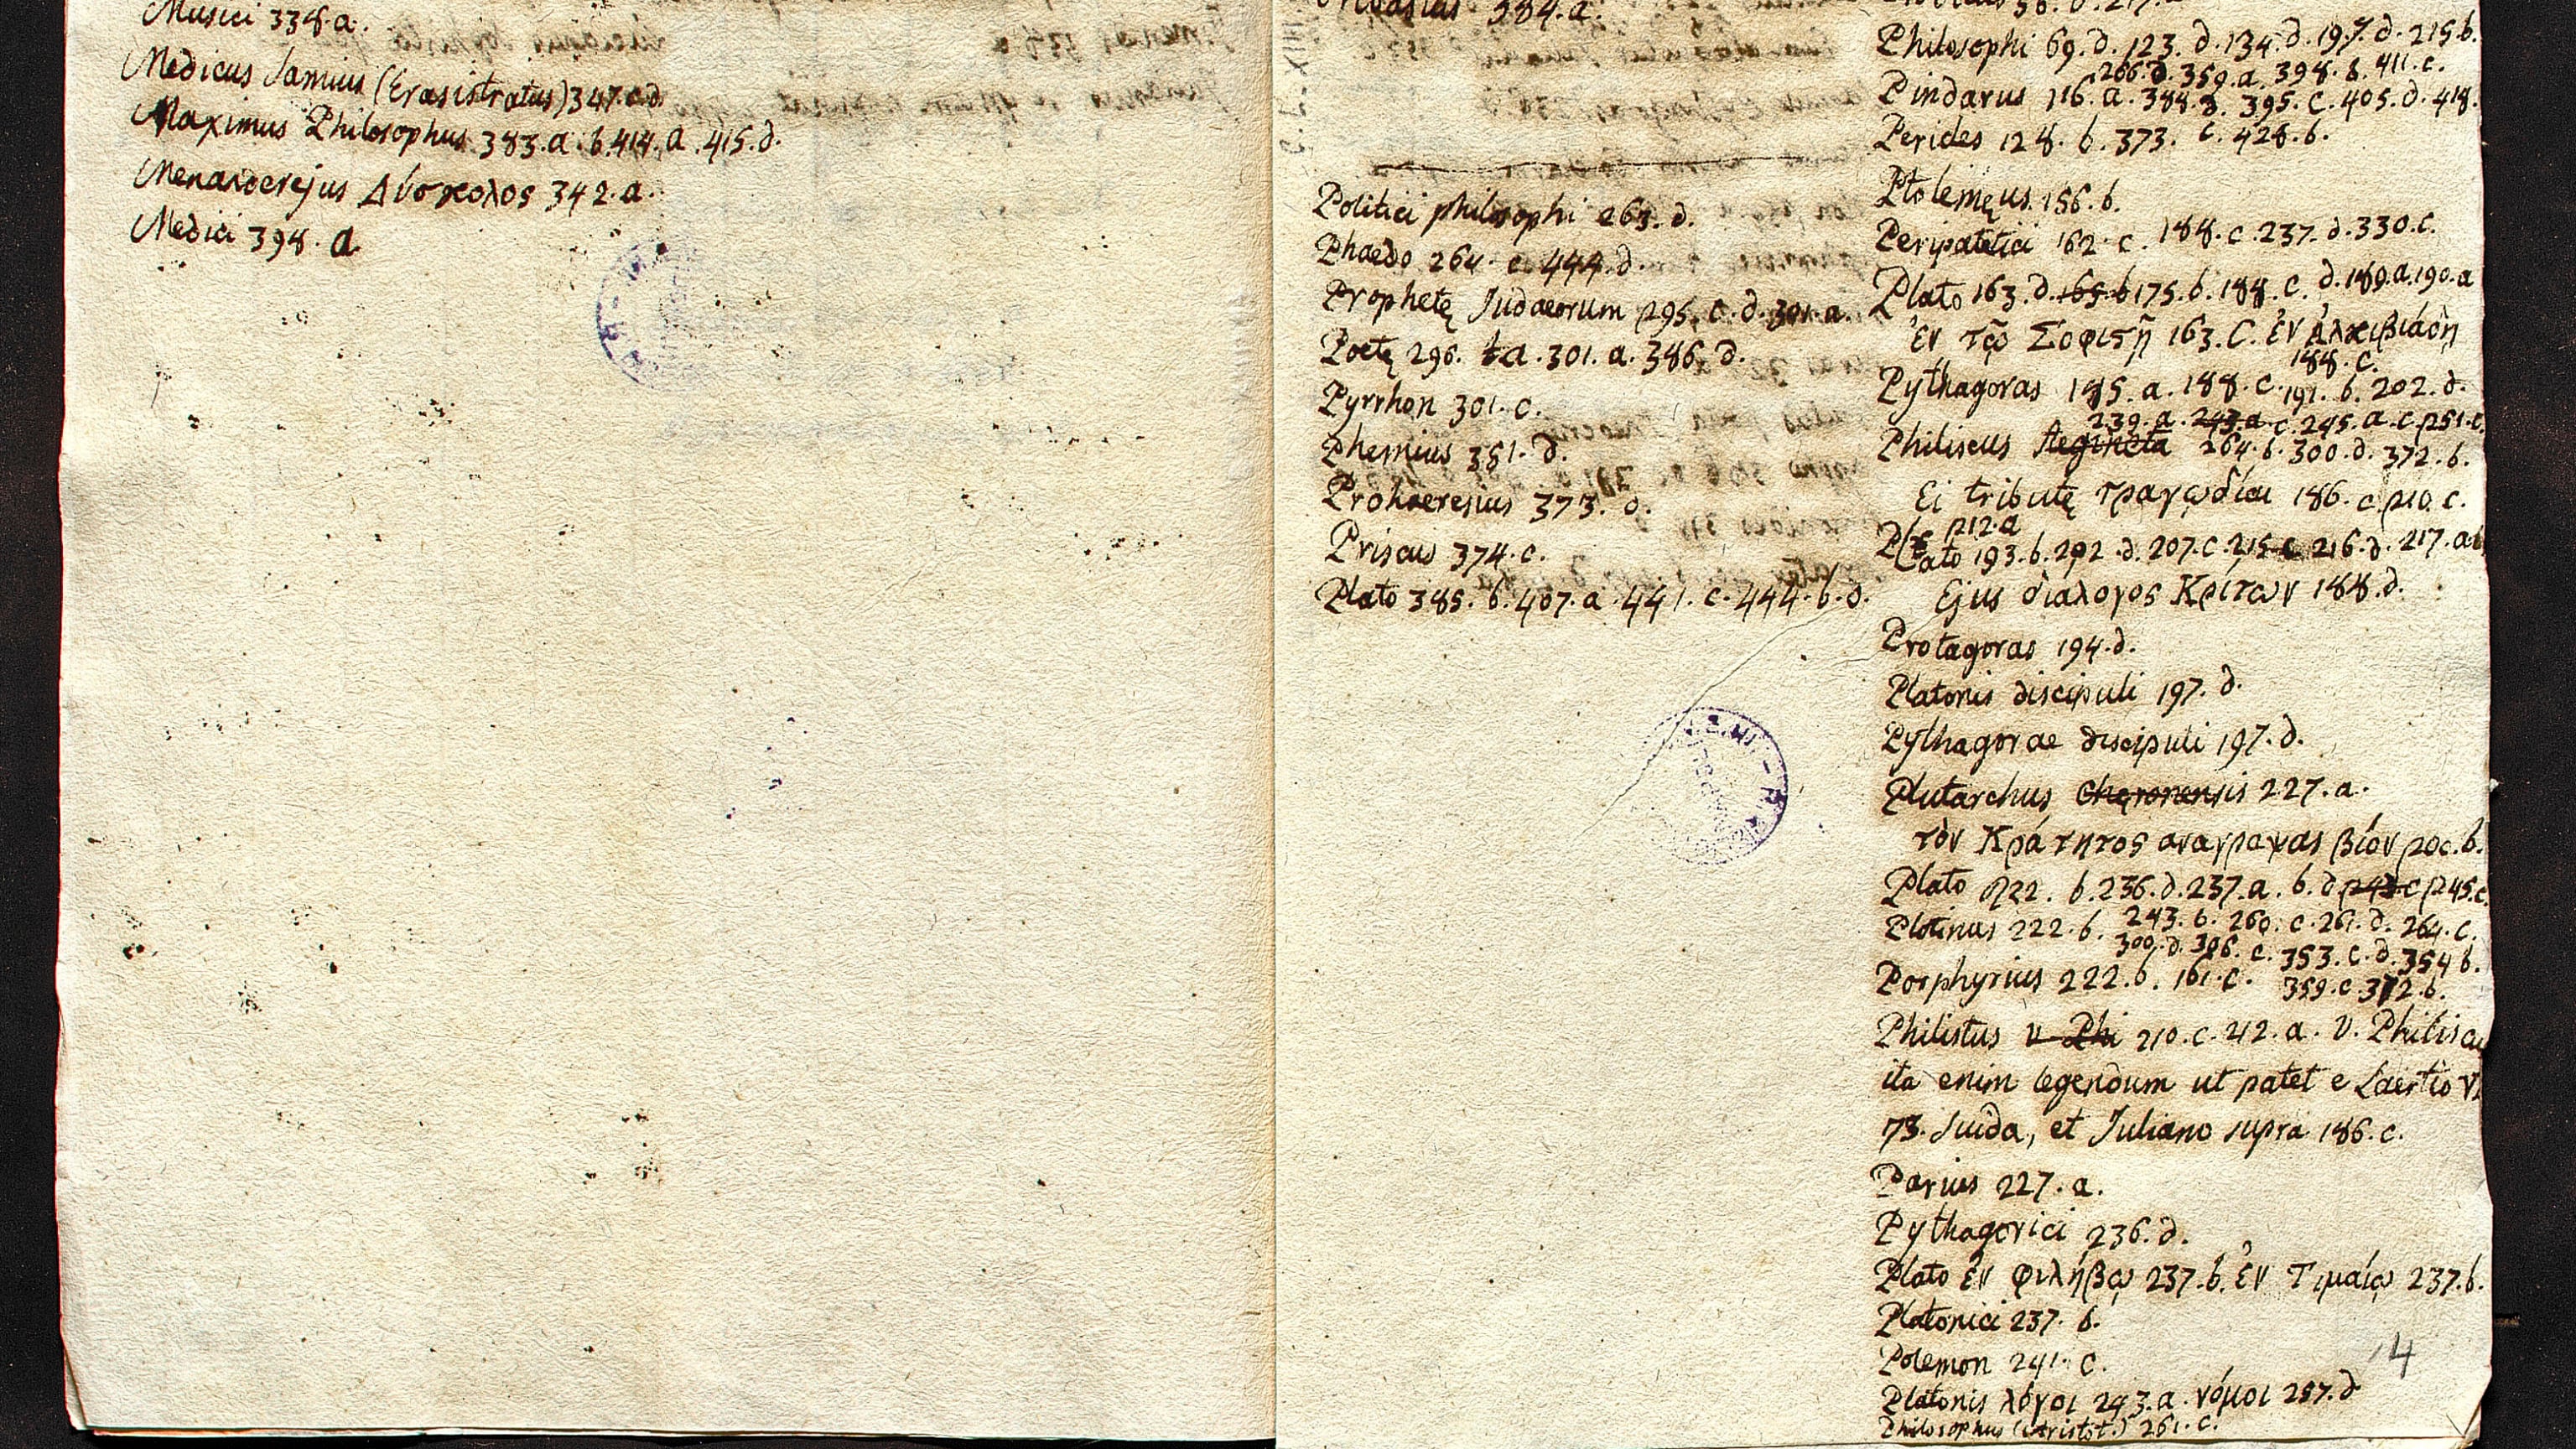 Musici 338.a.
Medicus Samius (Erasistratus) 347.c.d
Maximus Philosophus 383.a.b.414.a.415.d.
Menandrejus Δύσκολος 342.a.
Medici 398.a
384.a.
Politici philosophi 263.d.
Phaedo 264.c 444.d.
Prophetę Judaeorum 295.c.d.301.a.
Poetę 296. a.301.a.386.d.
Pyrrhon 301.c.
Phemius 351.d.
Prohaeresius 373.d.
Priscus 374.c.
Plato 385.b.407.a.441.c.444.b.d.
Philosophi 69.d.123.d.134.d.197.d.215.b.
266.d.359.a.398.b.411.c.
Pindarus 116.a.388.d.395.c.405.d.418.
Pericles 128.b.373.c.428.b.
Ptolemęus 156.b.
Peripatetici 162.c.188.c.237.d.330.c.
Plato 163.d.165.b 175.b.188.c.d.189.a.190.a
Ἐν τῷ Σοφιστῇ 163.C. ἐν Ἀλκιβιάδῃ
188.c.
Pythagoras 185.a.188.c.191.b.202.d.
239.a.243.a.c.245.a.c.251.c.
Philiscus Aegineta 264.b.300.d.372.b.
Ei tributę τραγῳδίαι 186.c.210.c.
212.a
Plato 193.b.202.d.207.c.215.c 216.d.217.a.b
Ejus διαλογος Κρίτων 188.d.
Protagoras 194.d.
Platonis discipuli 197.d.
Pythagorae discipuli 197.d.
Plutarchus Chęronensis 227.a.
τὸν Κράτητος αναγραψας βίον 200.b.
Plato 222.b.236.d.237.a.b.d.243.c 245.c.
Plotinus 222.b. 243.b.260.c.261.d.264.c.
300.d.306.c.353.c.d.354 b.
Porphyrius 222.b.161.c. 359.c.372.b.
Philistus v Phi 210.c.212.a. V. Philiscu
ita enim legendum ut patet e Laertio VI
73. Suida, et Juliano supra 186.c.
Parius 227.a.
Pythagorici 236.d.
Plato ἐν φιλήβῳ 237.b. ἐν Τιμαίῳ 237.b.
Platonici 237.b.
Polemon 241.c.
14
Platonis λόγοι 243.a. νόμοι 257.d
Philosophus (Aristot.) 261.c.